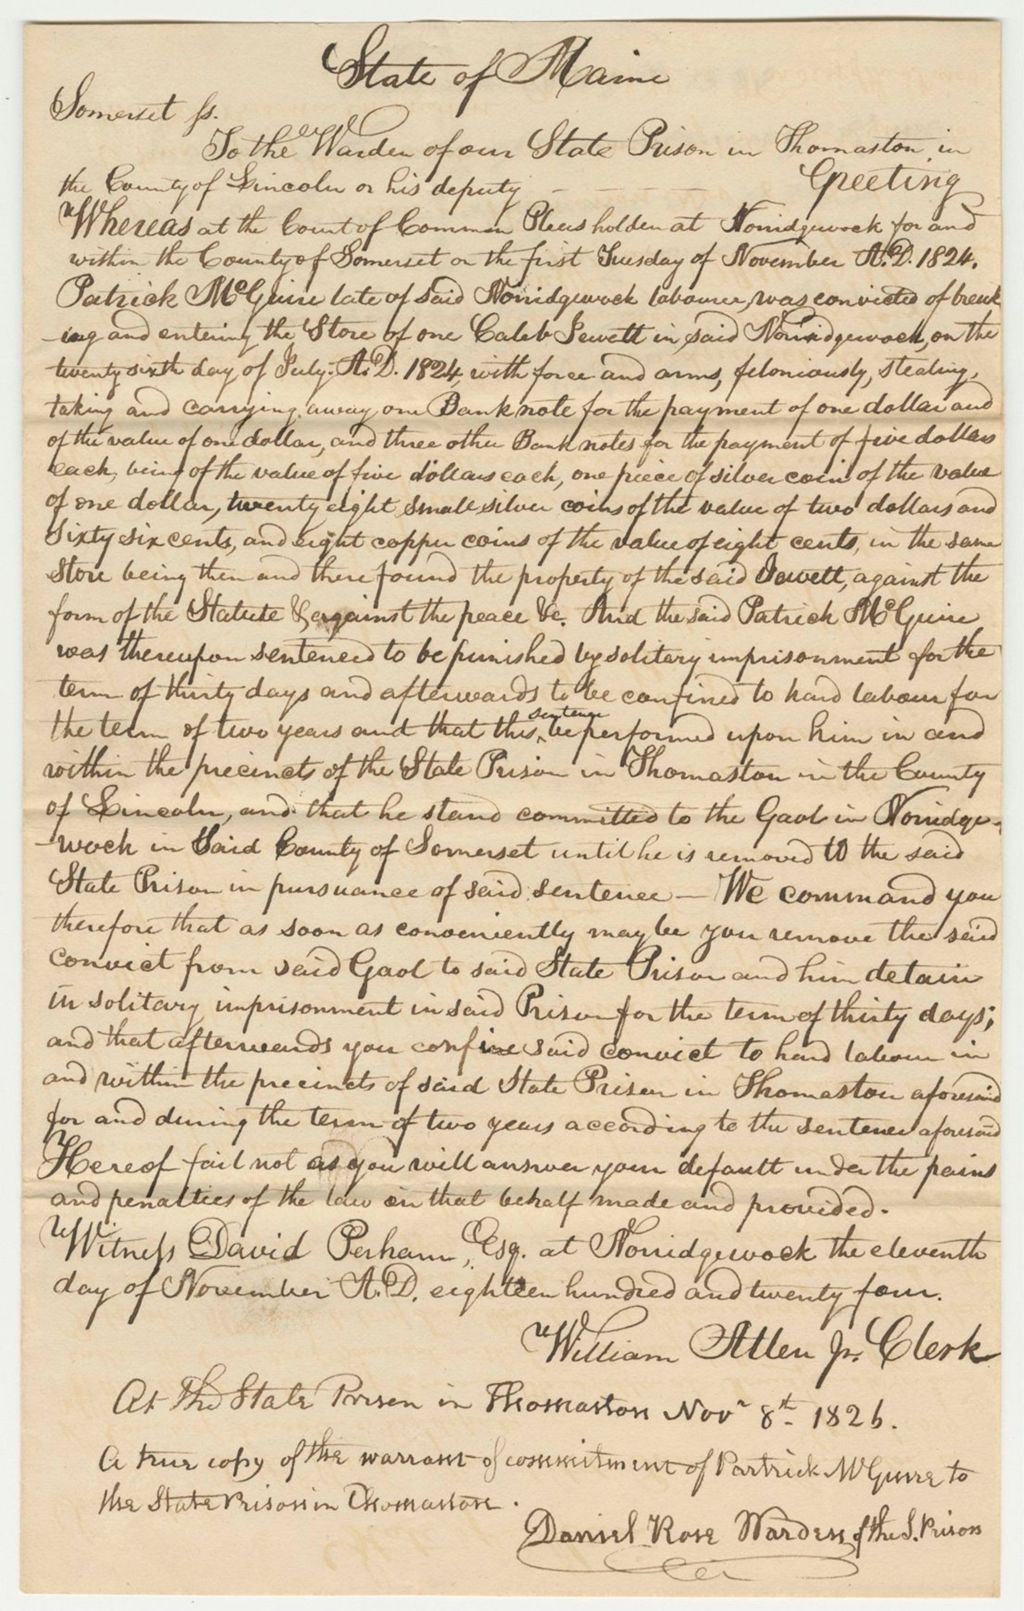 State of Maine
Somerset ss.
To the Warden of our State Prison in Thomaston, in
the County of Lincoln or his deputy - - - - Greeting
Whereas at the Court of Common Pleas holden at Norridgewock for and
within the County of Somerset on the first Tuesday of November A.D. 1824.
Patrick McGuire late of said Norridgewock labourer, was convicted of break
-ing and entering the Store of one Caleb Jewett in said Norridgewock, on the
twenty sixth day of July A.D. 1824, with force and arms, feloniously, stealing,
taking and carrying away one Bank note for the payment of one dollar and
of the value of one dollar, and three other Bank notes for the payment of five dollars
each, being of the value of five dollars each, one piece of silver coin of the value
of one dollar, twenty eight small silver coins of the value of two dollars and
sixty six cents, and eight copper coins of the value of eight cents, in the same
Store being then and there found the property of the said Jewett, against the
form of the Statute & against the peace &c. And the said Patrick McGuire
was thereupon sentenced to be punished by solitary imprisonment for the
term of thirty days and afterwards to be confined to hard labour for
the term of two years and that this sentence be performed upon him in and
within the precincts of the State Prison in Thomaston in the County
of Lincoln, and that he stand committed to the Gaol in Norridge-
-wock in said County of Somerset until he is removed to the said
State Prison in pursuance of said sentence — We command you
therefore that as soon as conveniently may be you remove the said
convict from said Gaol to said State Prison and him detain
in solitary imprisonment in said Prison for the term of thirty days;
and that afterwards you confine said convict to hard labour in
and within the precincts of said State Prison in Thomaston aforesaid
for and during the term of two years according to the sentence aforesaid
Hereof fail not as you will answer your default under the pains
and penalties of the law in that behalf made and provided.
Witness David Perham, Esq. at Norridgewock the eleventh
day of November A.D. eighteen hundred and twenty four.
William Allen Jr. Clerk
At The State Prison in Thomaston Novr 8th. 1826.
A true copy of the warrant of commitment of Partrick McGuire to
the State Prison in Thomaston.
Daniel Rose Warden of the S. Prison